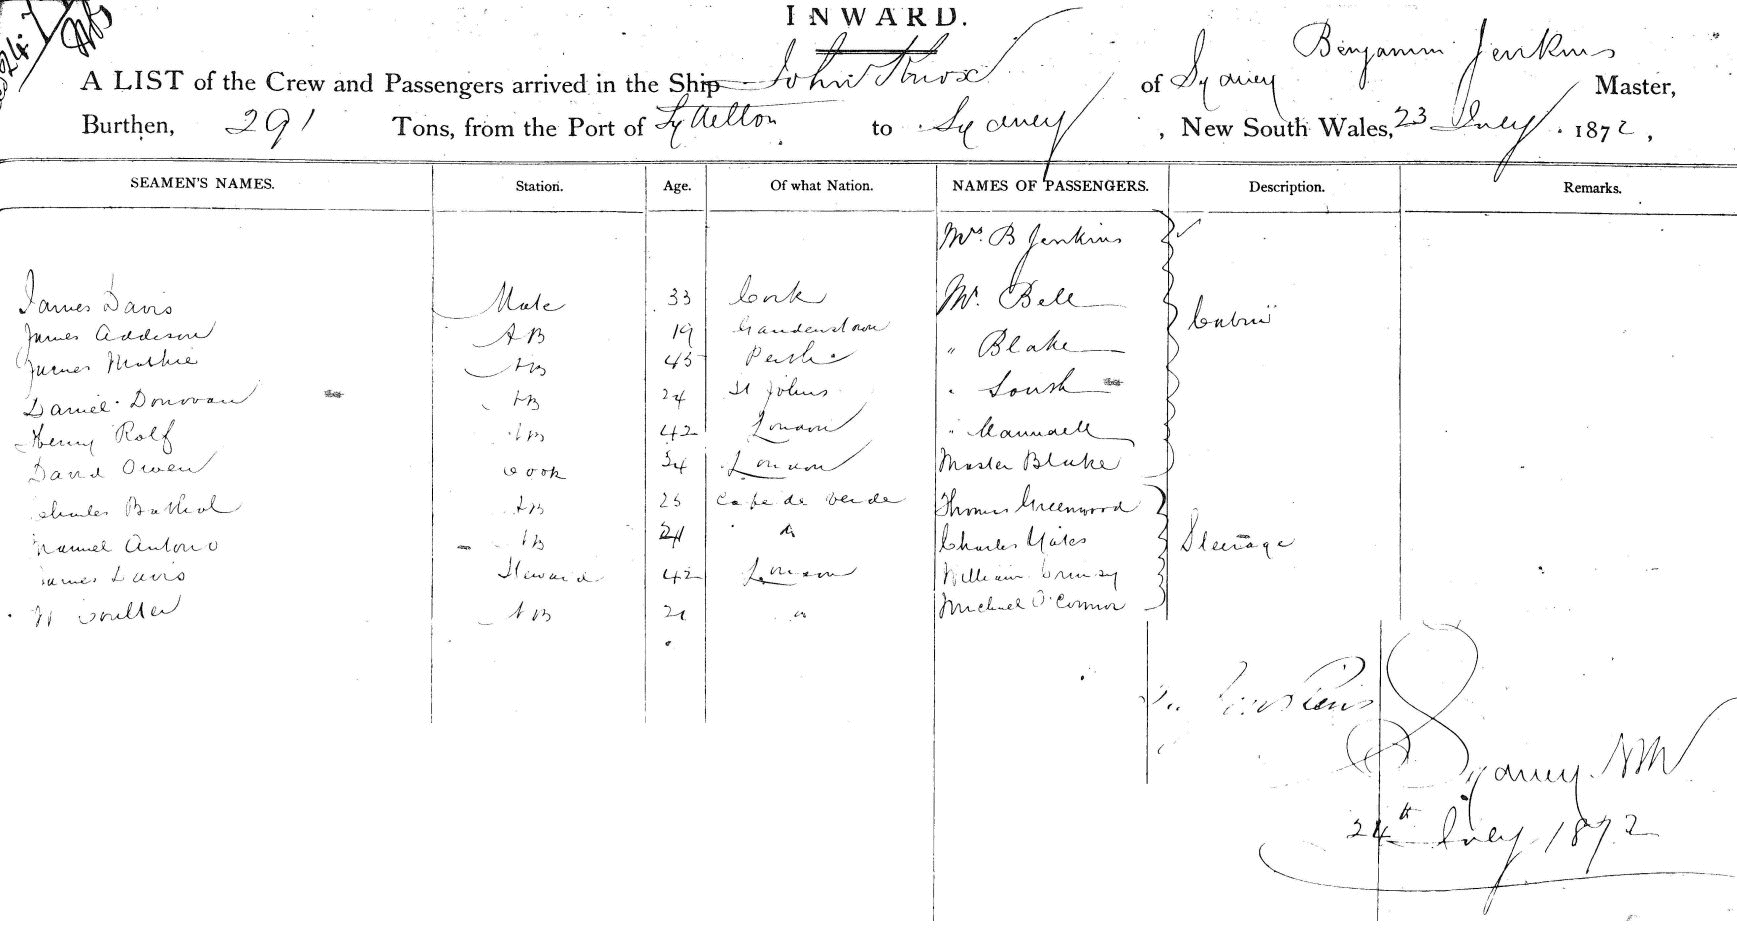 24
INWARD.
A LIST of the Crew and Passengers arrived in the Ship John Knox of Sydney Benjamin Jenkins Master,
Burthen, 291 Tons, from the Port of Lyttelton to Sydney, New South Wales, 23 July 1872,
SEAMEN'S NAMES. Station. Age. Of what Nation. NAMES OF PASSENGERS. Description. Remarks.
Mrs. B Jenkins
James Davis Mate 33 Cork Mr. Bell Cabin
James Addison AB 19 " Blake
James Mathie AB 45 Perth
Daniel Donovan AB 24 St Johns "
Henry Rolf AB 42 London "
David Owen Cook 34 London Master Blake
Charles AB 25 Cape de Verde Thomas Greenwood
Manuel Antonio AB " Charles Yates Steerage
James Davis Steward 42 London William
W Coulter AB 21 " Michael O'Connor
Jenkins
Sydney NSW
24th July 1872